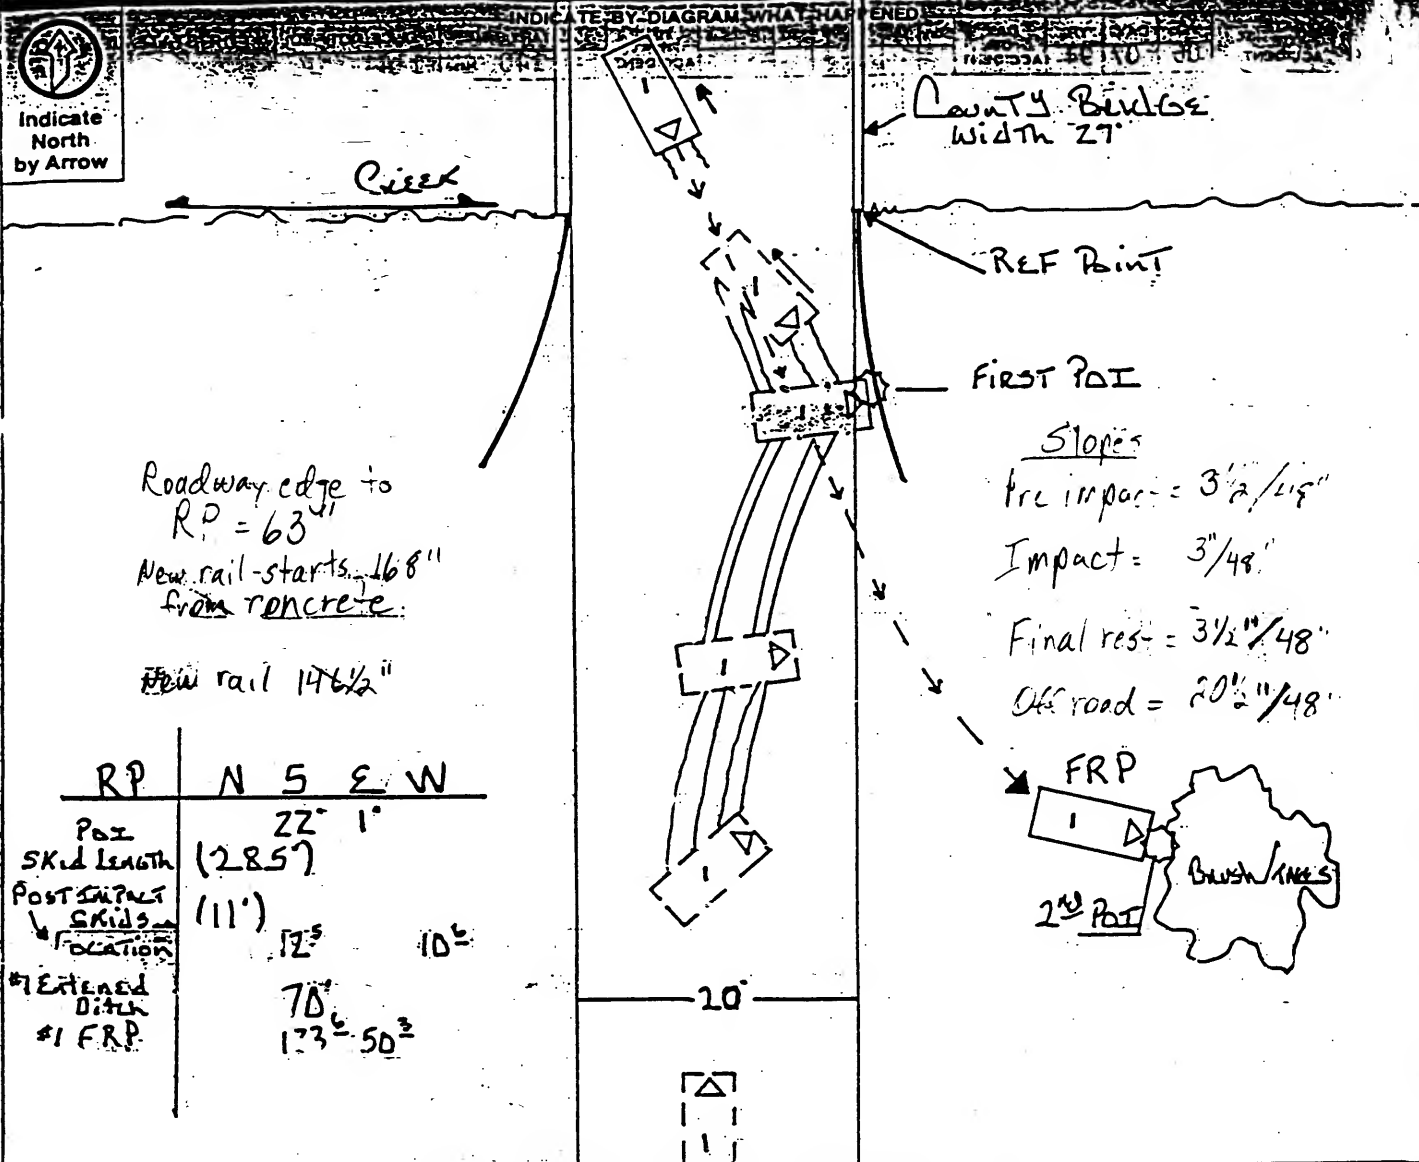 INDICATE BY DIAGRAM WHAT HAPPENED
Indicate
North
by Arrow
Creek
County Bridge
Width 27'
REF Point
First POI
Slopes
Pre impact = 3 1/2/48"
Impact = 3"/48"
Final rest = 3 1/2"/48"
Off road = 20 1/2"/48"
Roadway edge to
RP = 63"
New rail starts 168"
from concrete.
New rail 146 1/2"
RP N S E W
POI 22' 1'
Skid Length (285')
Post Impact
Skids (11')
Location 12⁵ 10⁶
#1 Entered
Ditch 70'
#1 FRP 50³
FRP
1
Brush/Trees
2nd POI
20'
1
1
1
1
1
1